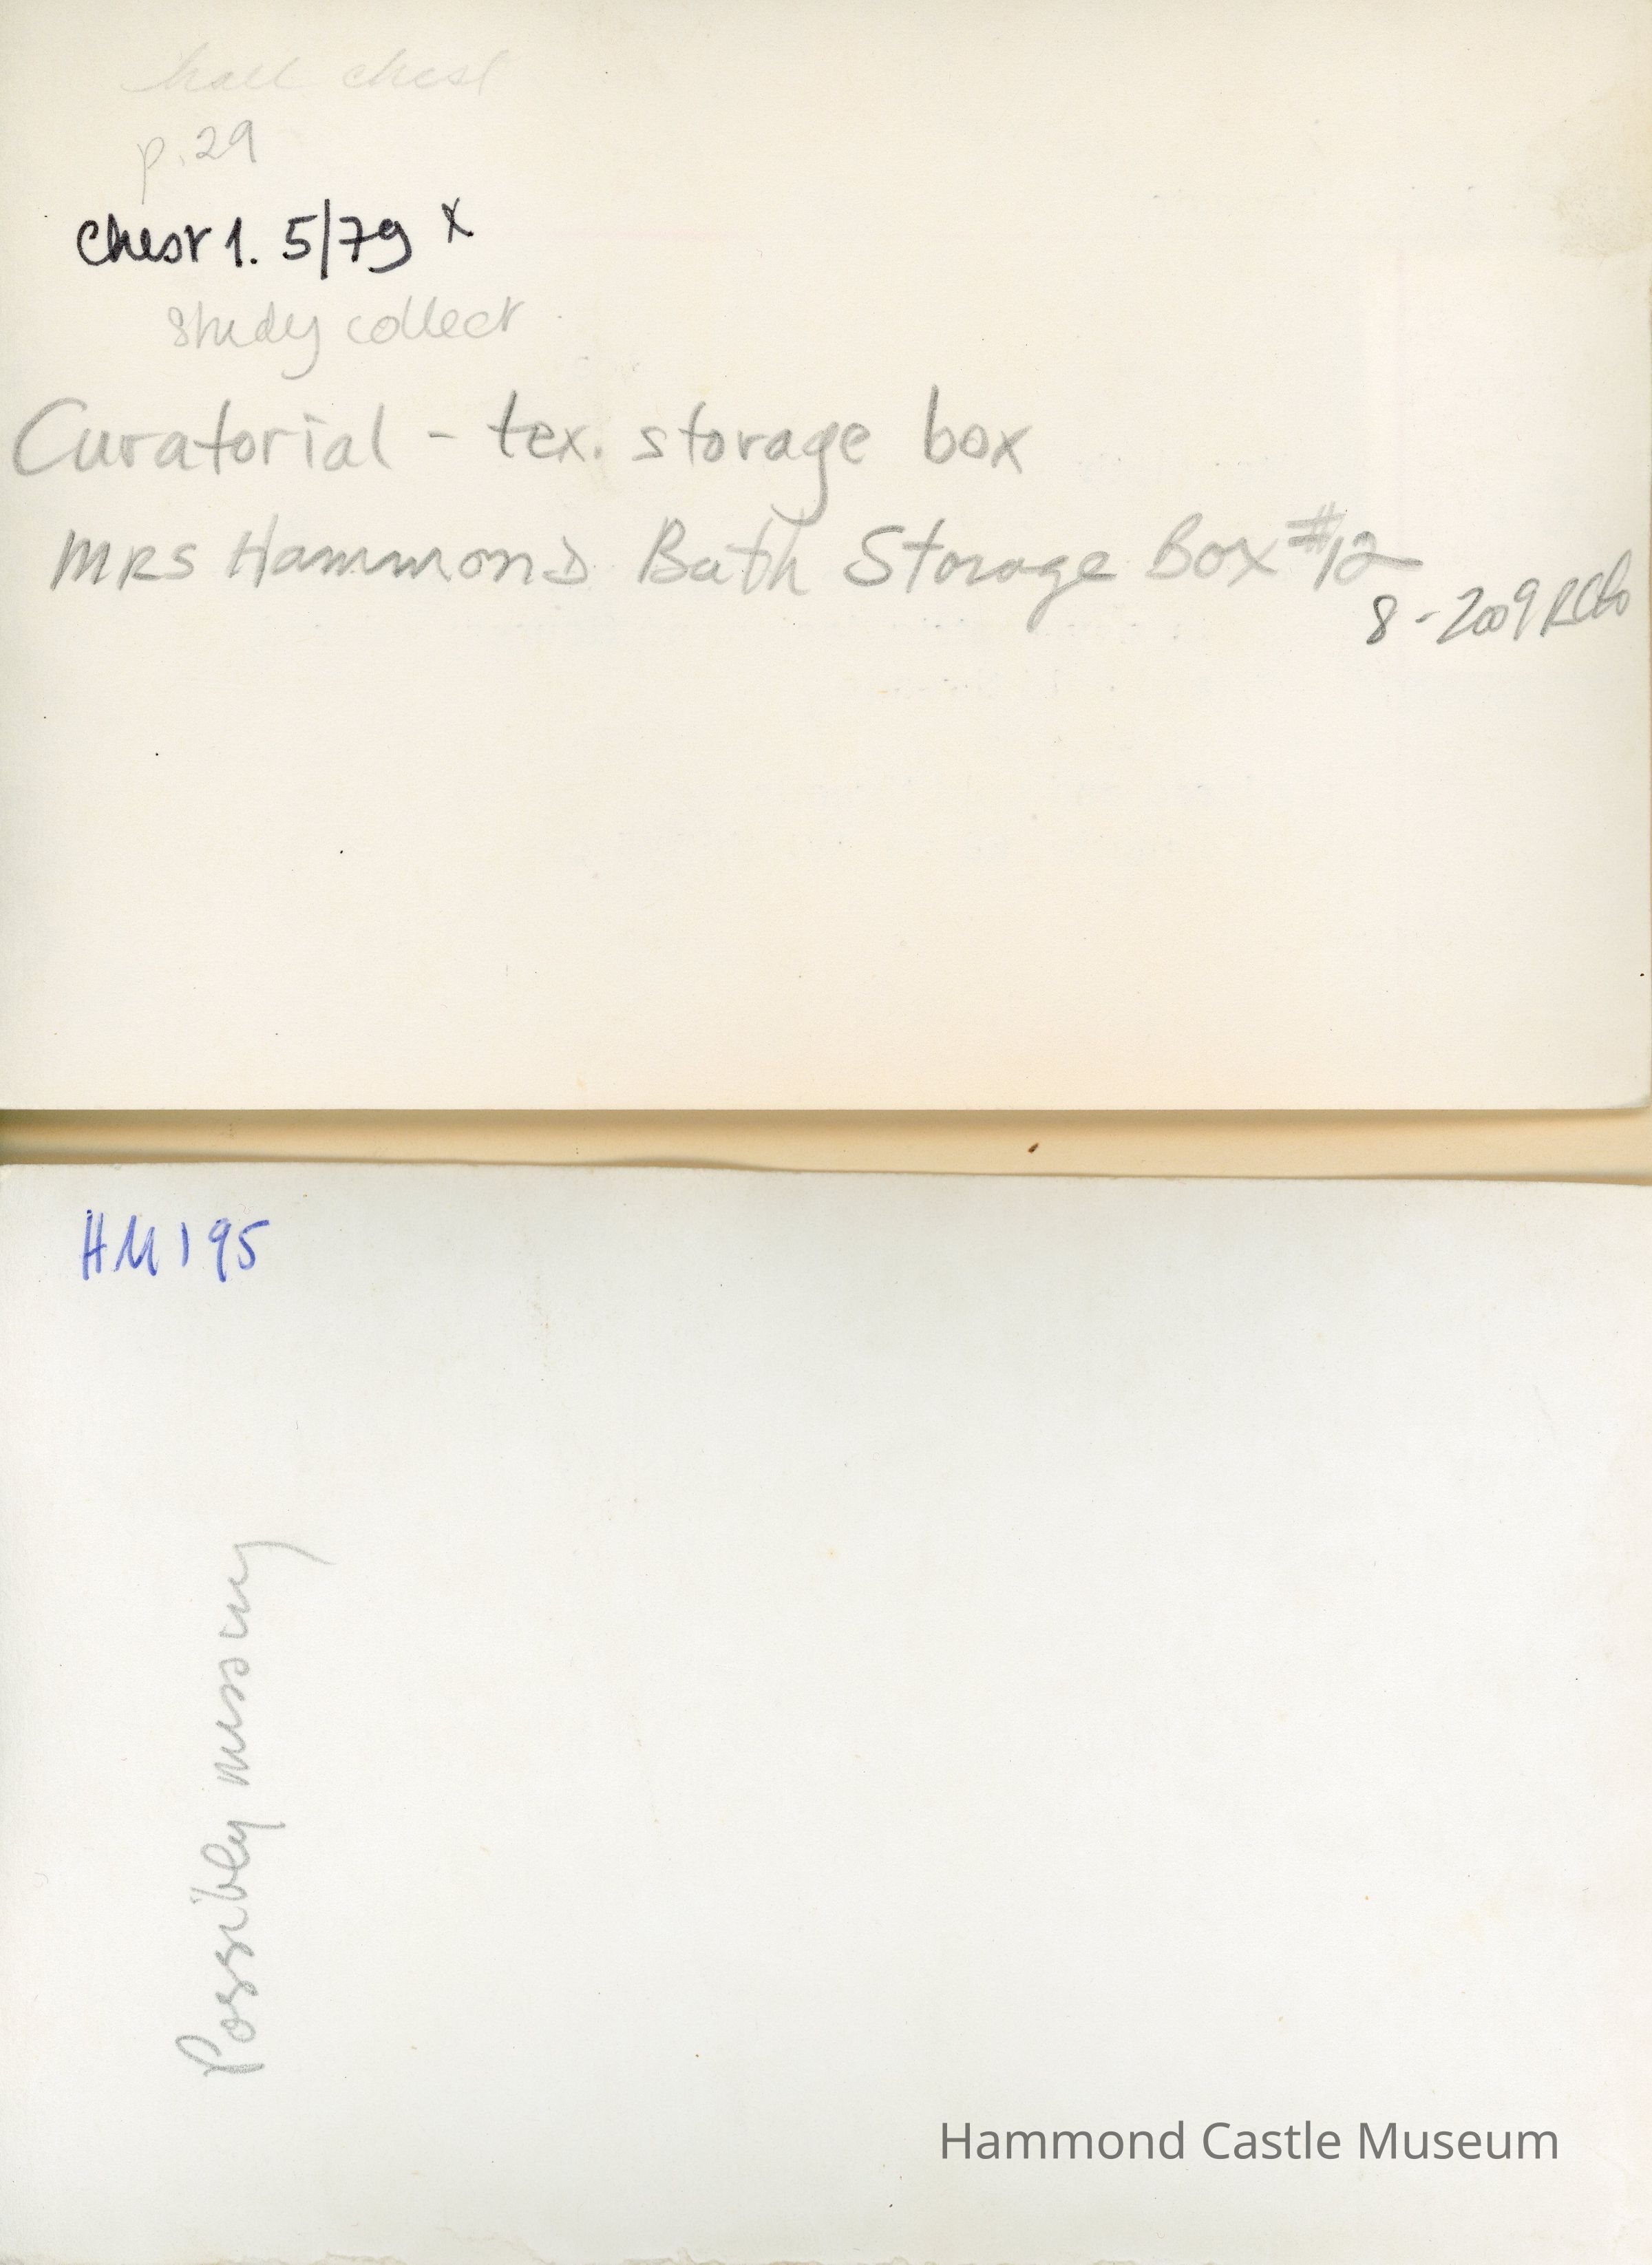 hall chest
p.29
Chest 1. 5/79 x
study collect
Curatorial - tex. storage box
MRS HammonD Bath Storage Box #12
8-2009
HM195
Possibly missing
Hammond Castle Museum